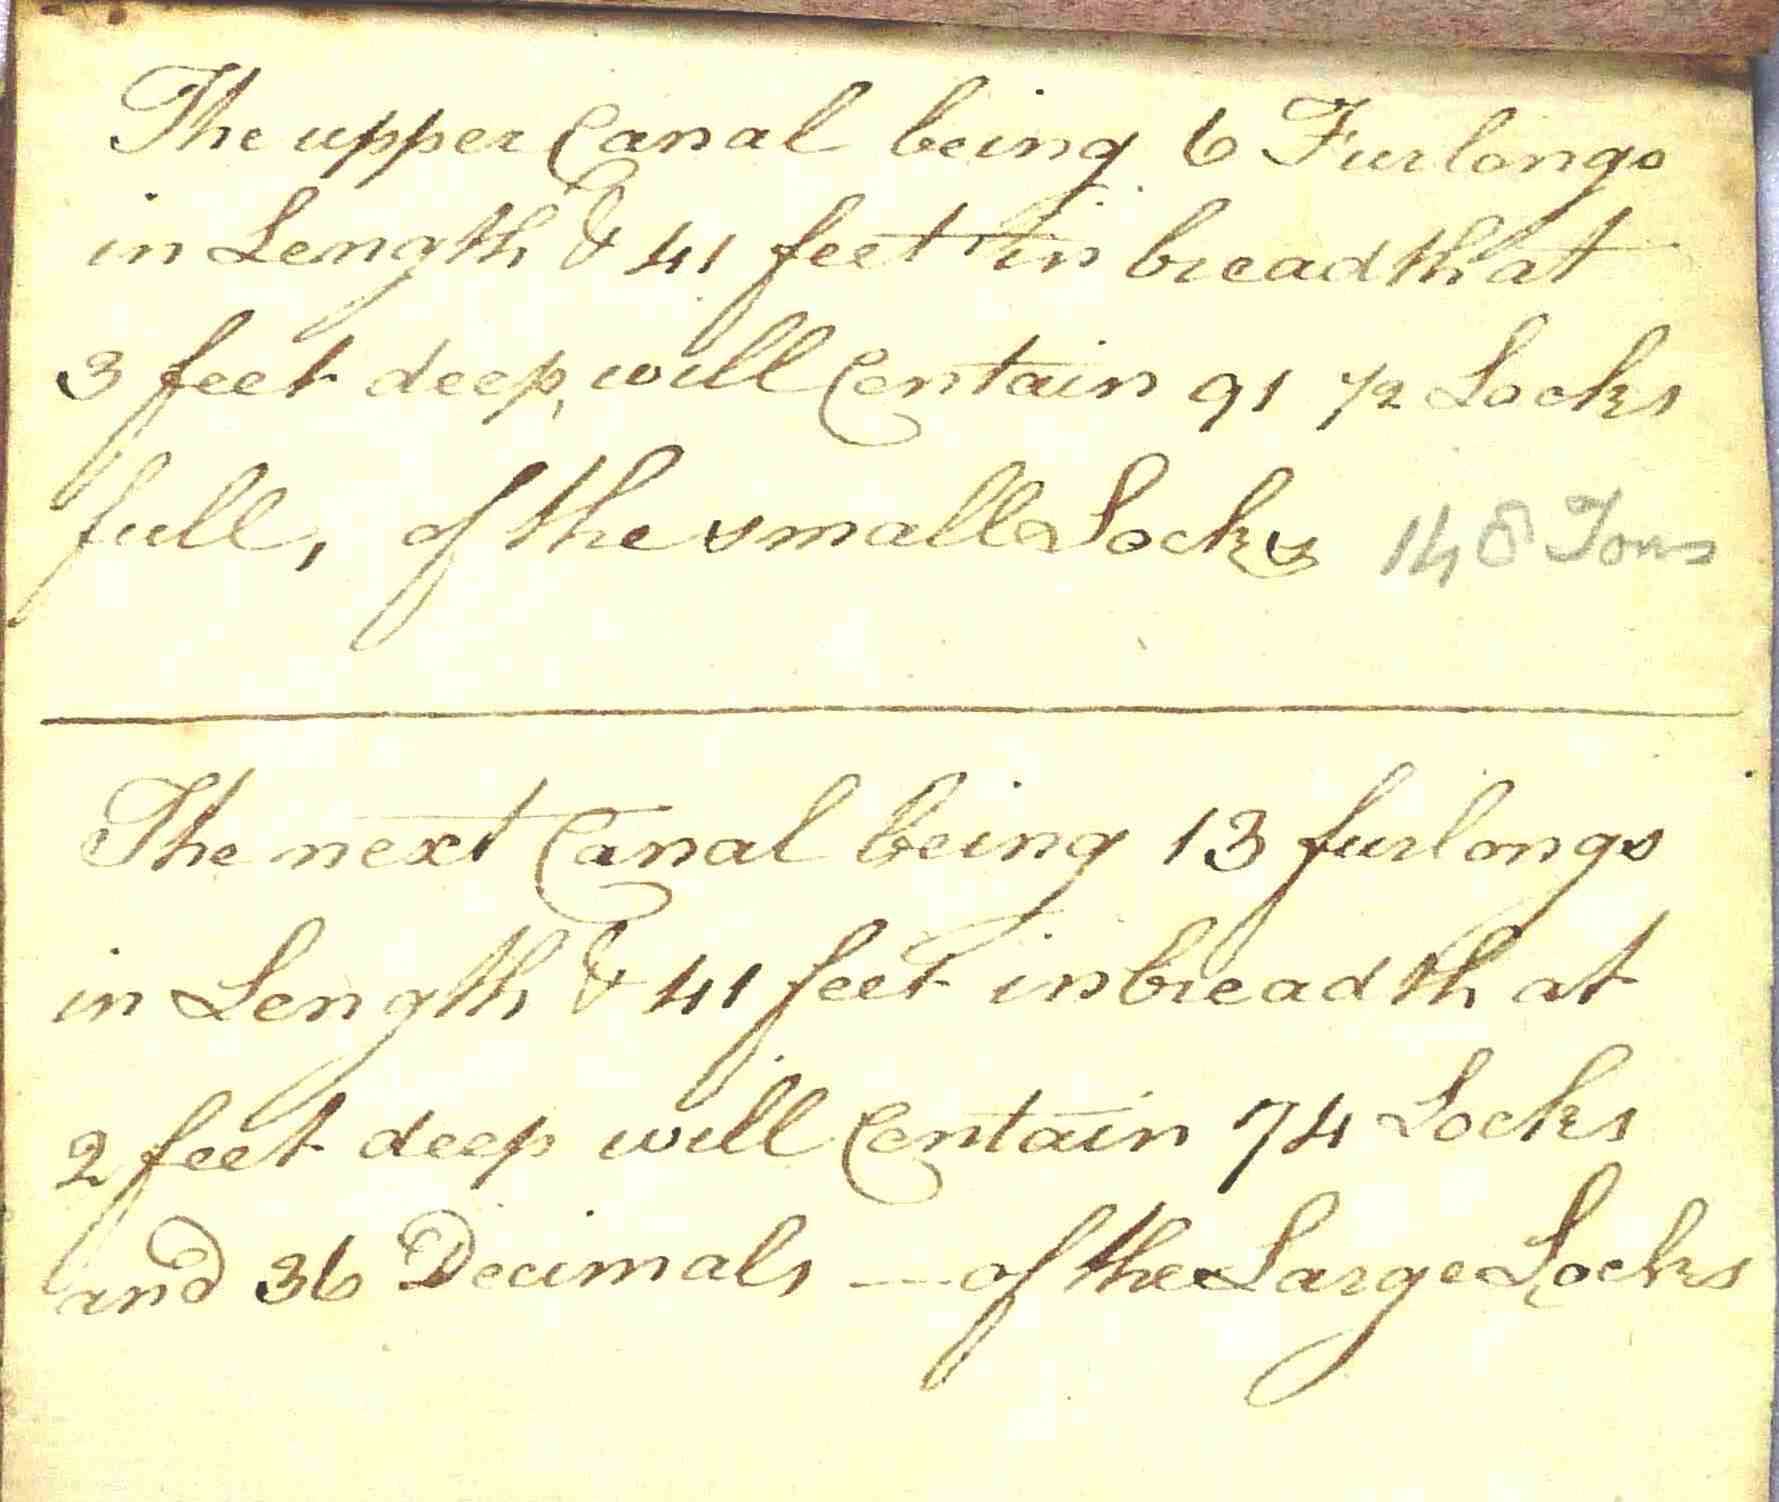 The upper Canal being 6 Furlongs
in Length & 41 feet in breadth at
3 feet deep, will Contain 91 1/2 Locks
full, of the small Locks 148 Tons
The next Canal being 13 furlongs
in Length & 41 feet in breadth at
2 feet deep will Contain 74 Locks
and 36 Decimals — of the Large Locks